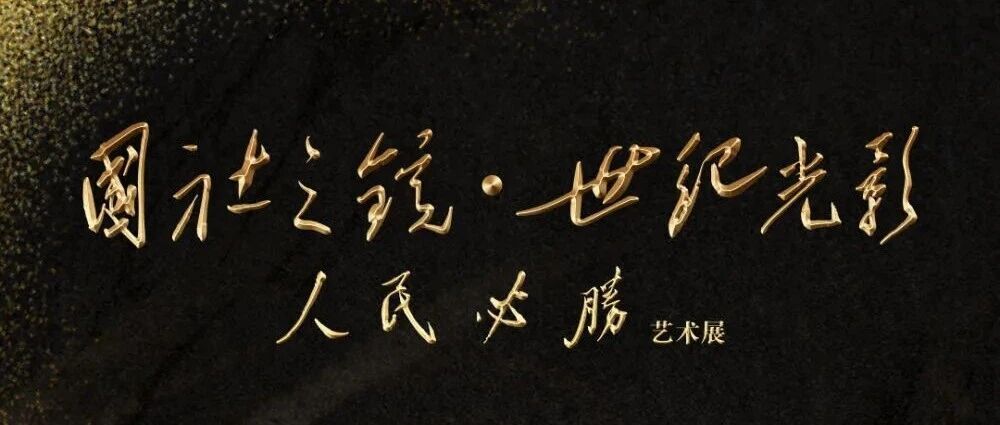 國社之鏡·世紀光影
人民必勝 艺术展